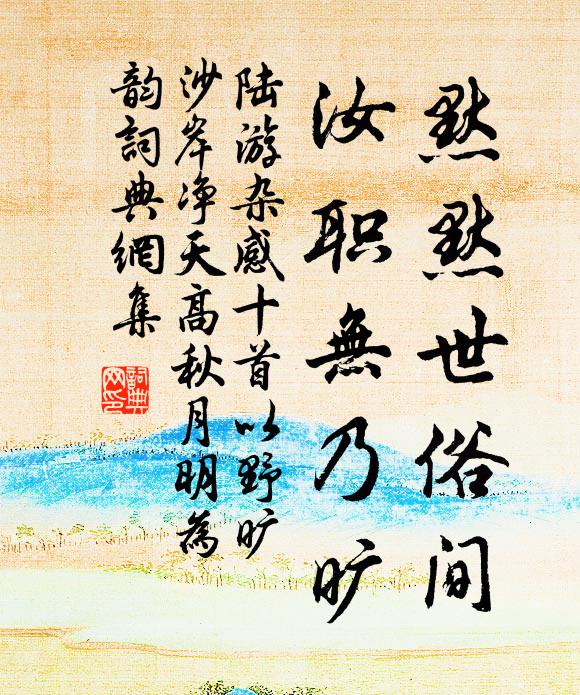 默默世俗间
汝职無乃旷
陆游杂感十首以野旷
沙岸净天高秋月明為
韵詞典網集
詞典
网印